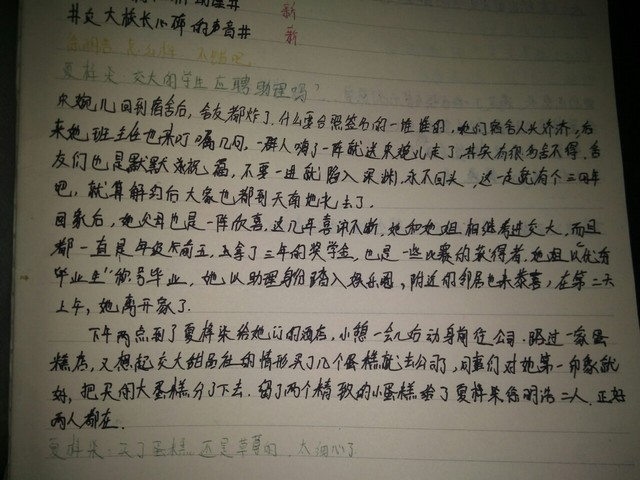 #交大校长心碎的声音#
新
薪
夏梓柒 交大的学生应聘助理吗?
宋婉儿回到宿舍后,舍友都炸了,什么要合照签名的一堆堆的,她们宿舍人头济济,后
来她班主任也来叮嘱几句,一群人嗨了一阵就送宋婉儿走了,其实有很多舍不得,舍
友们也是默默为祝福,不要一进就陷入深渊,永不回头,这一走就有个三四年
吧,就算解约后大家也都到天南地北去了。
回家后,她父母也是一阵欣喜,这几年喜讯不断,她和她姐相继考进交大,而且
都一直是年级前五,去拿了三年的奖学金,也是一些比赛的获得者,她姐以“优秀
毕业生”称号毕业,她以助理身份踏入娱乐圈,附近的邻居也来恭喜,在第二天
上午,她离开家了.
下午两点到了夏梓柒给她订的酒店,小憩一会儿后动身前往公司.路过一家蛋
糕店,又想起交大甜品座的情形买了几个蛋糕就去公司了,同事们对她第一印象就
好,把买的大蛋糕分了下去.留了两个精致的小蛋糕给了夏梓柒 明浩二人.正好
两人都在.
夏梓柒:买了蛋糕 还是草莓的,太细心了